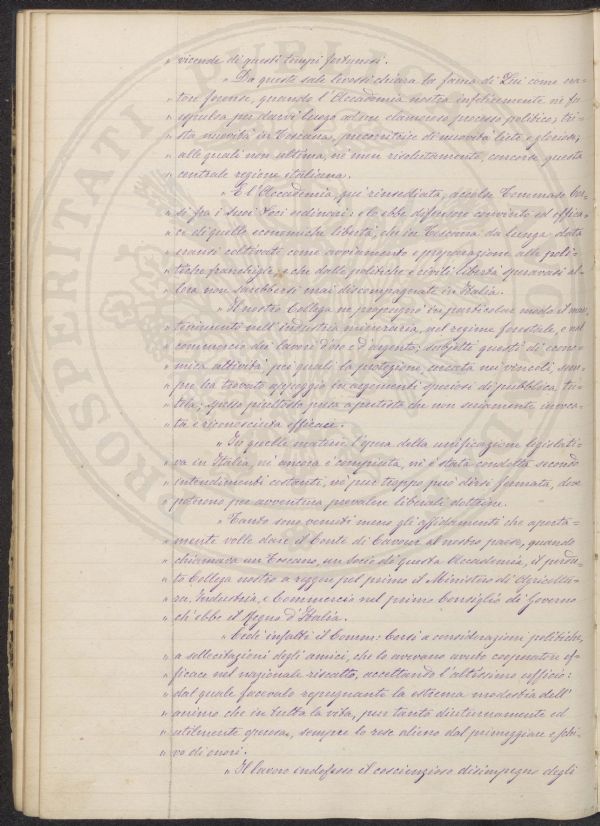 " vicende di questi tempi fortunosi.
" Da queste sale levossi chiara la fama di Lui come ora-
" tore forense, quando l'Accademia nostra infelicemente ne fu
" espulsa per darvi luogo ad un clamoroso processo politico; tri-
" sta novità in Toscana, precorritrice di novità liete e gloriose;
" alle quali non ultima, nè men risolutamente, concorse questa
" centrale regione italiana.
" E l'Accademia, qui rinsediata, accolse Tommaso Cor-
" si fra i suoi Soci ordinari; e lo ebbe difensore convinto ed effica-
" ce di quelle economiche libertà, che in Toscana da lunga data
" eransi coltivate come avviamento e preparazione alle poli-
" tiche franchigie, e che dalle politiche e civili libertà speravasi al-
" lora non sarebbersi mai discompagnate in Italia.
" Il nostro Collega ne propugnò in particolar modo il man-
" tenimento nell'industria mineraria, nel regime forestale, e nel
" commercio dei lavori d'oro e d'argento; subjetti questi di econo-
" mica attività pei quali la protezione, cercata nei vincoli, sem-
" pre ha trovato appoggio in argomenti speciosi di pubblica tu-
" tela; spesso piuttosto presa a pretesto che non seriamente invoca-
" ta e riconosciuta efficace.
" In quelle materie l'opera della unificazione legislati-
" va in Italia, nè ancora è compiuta, nè è stata condotta secondo
" intendimenti costanti, nè pur troppo può dirsi fermata, dove
" poterono per avventura prevalere liberali dottrine.
" Tanto sono venuti meno gli affidamenti che aperta-
" mente volle dare il Conte di Cavour al nostro paese, quando
" chiamava un Toscano, un socio di questa Accademia, il perdu-
" to Collega nostro a reggere pel primo il Ministero di Agricoltu-
" ra, Industria, e Commercio nel primo Consiglio di Governo
" ch'ebbe il Regno d'Italia.
" Cedè infatti il Comm: Corsi a considerazioni politiche,
" a sollecitazioni degli amici, che lo avevano avuto cooperatore ef-
" ficace nel nazionale riscatto, accettando l'altissimo ufficio:
" dal quale facevalo repugnante la estrema modestia dell'
" animo che in tutta la vita, pur tanto diuturnamente ed
" utilmente operosa, sempre lo rese alieno dal primeggiare e schi-
" vo di onori.
" Il lavoro indefesso il coscienzioso disimpegno degli
PROSPERITATI PUBLICAE